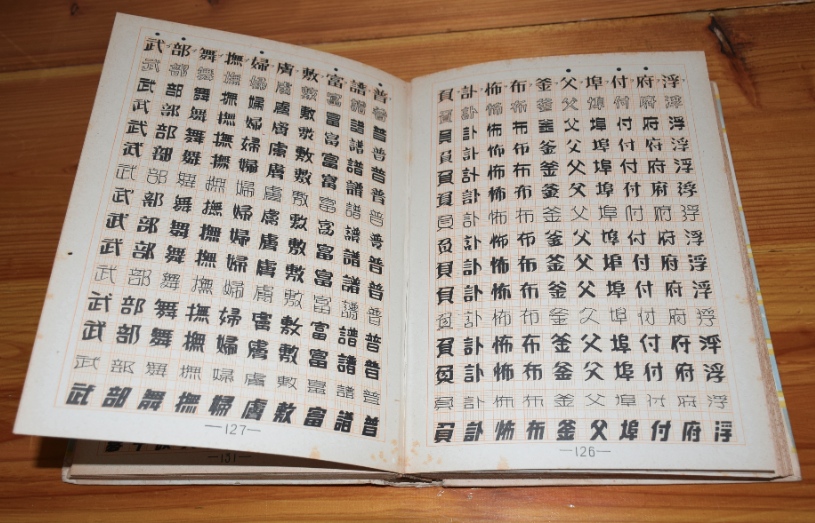 浮浮浮浮浮浮浮浮浮浮浮浮浮浮浮
府府府府府府府府府府府府府府府
付付付付付付付付付付付付付付付
埠埠埠埠埠埠埠埠埠埠埠埠埠埠埠
父父父父父父父父父父父父父父父
釜釜釜釜釜釜釜釜釜釜釜釜釜釜釜
布布布布布布布布布布布布布布布
怖怖怖怖怖怖怖怖怖怖怖怖怖怖怖
訃訃訃訃訃訃訃訃訃訃訃訃訃訃訃
負負負負負負負負負負負負負負負
—126—
普普普普普普普普普普普普普普普
譜譜譜譜譜譜譜譜譜譜譜譜譜譜譜
富富富富富富富富富富富富富富富
敷敷敷敷敷敷敷敷敷敷敷敷敷敷敷
膚膚膚膚膚膚膚膚膚膚膚膚膚膚膚
婦婦婦婦婦婦婦婦婦婦婦婦婦婦婦
撫撫撫撫撫撫撫撫撫撫撫撫撫撫撫
舞舞舞舞舞舞舞舞舞舞舞舞舞舞舞
部部部部部部部部部部部部部部部
武武武武武武武武武武武武武武武
—127—
—131—